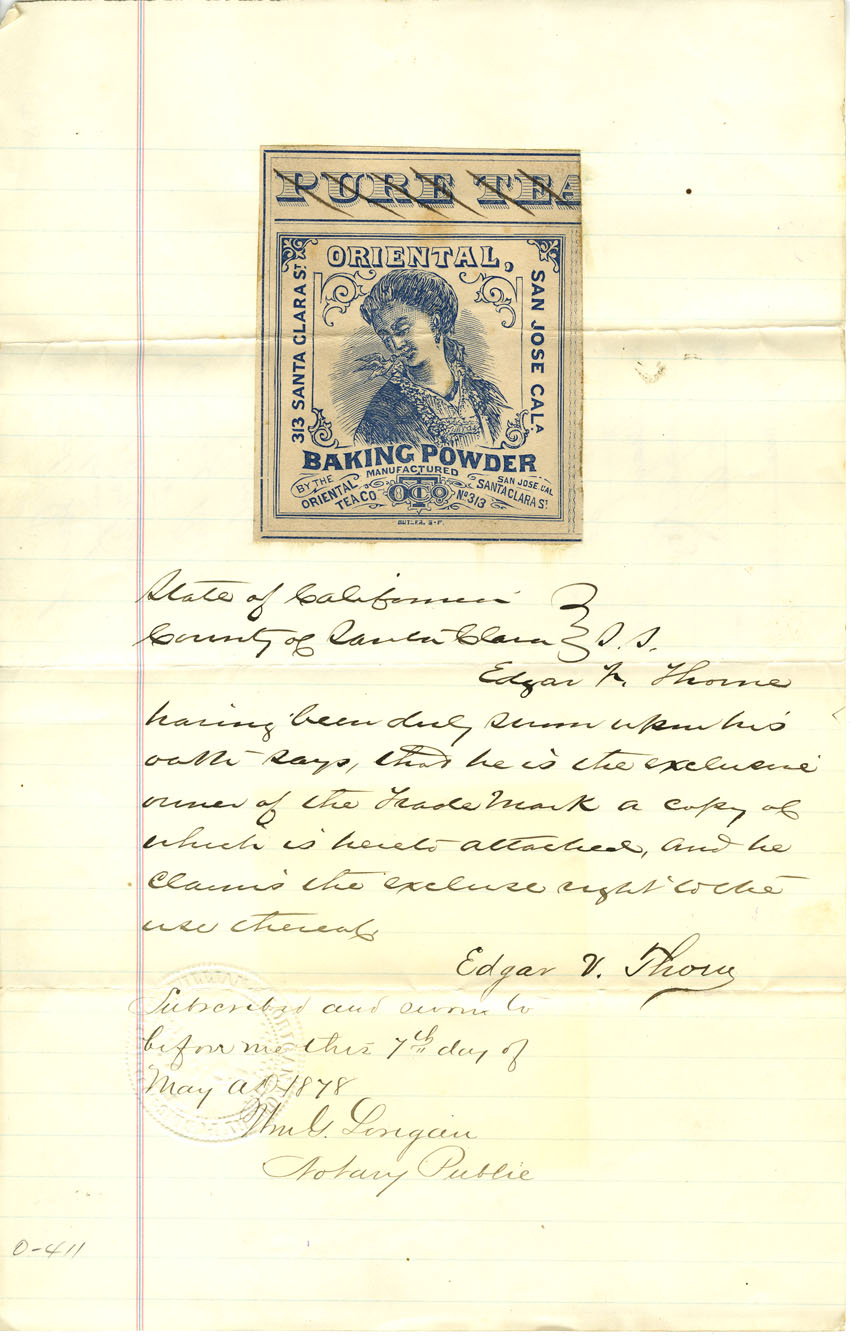 PURE TEA
ORIENTAL,
313 SANTA CLARA ST
SAN JOSE CAL.
BAKING POWDER
MANUFACTURED
BY THE
ORIENTAL
TEA CO
OTCO
No 313
SAN JOSE CAL
SANTA CLARA ST
BUTLER, S-F.
State of California
County of Santa Clara } S. S.
Edgar V. Thorne
having been duly sworn upon his
oath says, that he is the exclusive
owner of the Trade Mark a copy of
which is hereto attached, and he
claims the excluse right to the
use thereof
Edgar V. Thorn
Subscribed and sworn to
before me this 7th day of
May AD 1878
Wm G. Lorigan
Notary Public
0-411